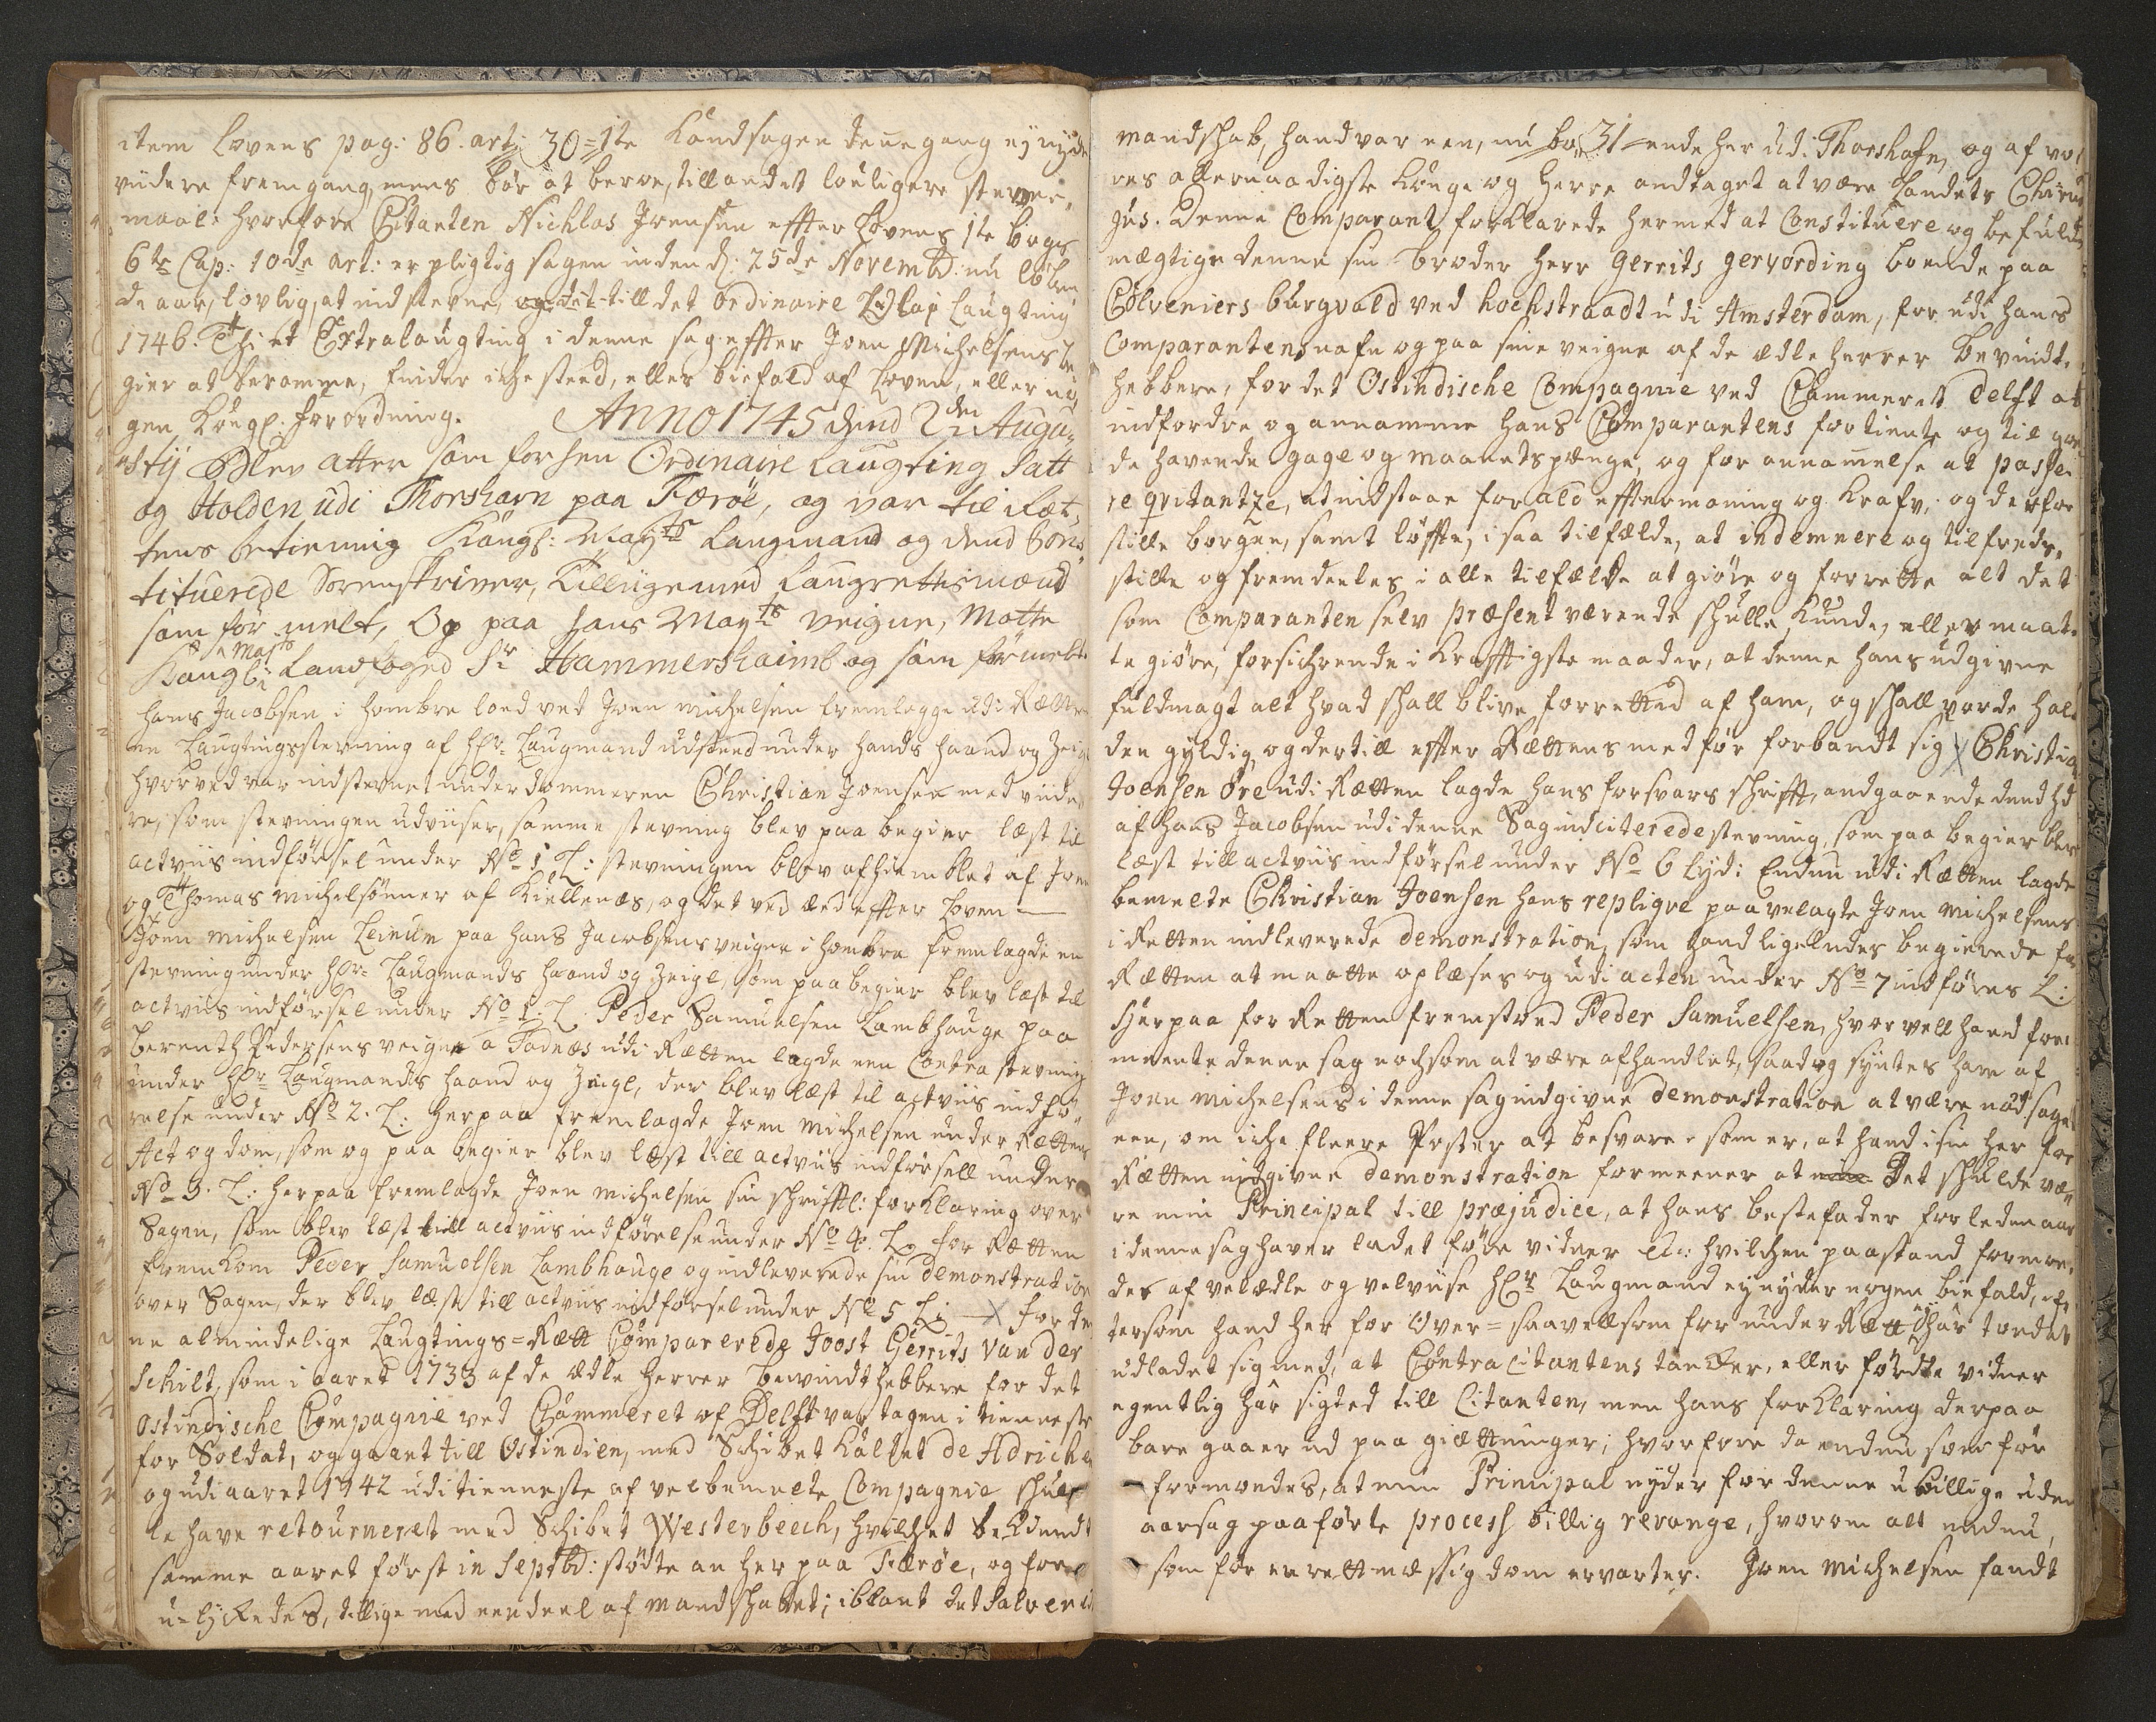 item Lovens pag: 86. art: 30=1te kand sagen denne gang ej nyde
viidere fremgang, mens bør at beroe, till andet louligere stevne,
maal: hvorfore Citanten Nichlas Joensen effter Lovens 1te bogs
6te Cap: 10de art: er pligtig sagen inden d: 25de Novembr: nu løben
de aar, lovlig, at indstevne, og det till det ordinaire Laugting
1746. Thi et Extralaugting i denne sag effter Joen Michelsens be
gier at beramme, finder iche sted, eller biefald af Loven, eller no
gen Kongl: forordning. Anno 1745 dend 2den Augu,
stij Blev atter som forhen Ordinaire Laugting Satt
og Holden udi Thorshavn paa Færöe, og var til Ræt,
tens betiening Kongl: Maÿts Laugmand og dend Cons
tituerede Sorenskriver, tillige med Laugrettismænd
som før melt, Og paa hans Maÿts veigne, Møtte
Kongl: Mayts Landfoged Sr Hammershaimb og som förmelte
Hans Jacobsen i hombre loed ved Joen Michelsen fremlegge udi Rætten
en Laugtings stevning af Hr: Laugmand udsteed under hands haand og Zeigl
hvorved var indstevnet underdommeren Christian Joensen med viide
re, som stevningen udviiser, samme stevning blev paa begier læst til
actviis indførsel under No 1 L: stevningen blev afhiemblet af Joen
og Thomas Michelsönner af Kiellenæs, og det ved æed effter Loven
Joen Michelsen Leinum paa Hans Jacobsens veigne i hombre fremlagde en
stevning under Hr: Laugmands haand og Zeigl, som paa begier blev læst til
actviis indførsel under No 1. L. Peder Samuelsen Lambhauge paa
Berenth Pedersens veigne a Todnæs udi Rætten lagde een Contra stevning
under Hr Laugmands haand og Zeigl, der blev læst til actviis indfø,
relse under No 2. L: herpaa fremlagde Joen Michelsen under Rættens
Act og dom, som og paa begier blev læst till actviis indførsell under
No 3. L: herpaa fremlagde Joen Michelsen sin schrifftl: forklaring over
Sagen, som blev læst till actviis indførelse under No 4. L. for Rætten
fremkom Peder Samuelsen Lambhauge og indleverede sin demonstration
over Sagen, der blev læst till actviis indførsel under No 5 L: X for den
ne almindelige Laugtings=Rætt Comparerede Joost Gerrits van der
Schilt, som i aaret 1733 af de ædle Herrer Bevindthebbere for det
Ostindische Compagnie ved Chammeret af Delft var tagen i tienneste
for Soldat, og gaaet till Ostindien, med Schibet kaldet de Adriche
og udi aaret 1742 udi tienneste af velbemelte Compagnie schul
le have retourneret med Schibet Westerbeech, hvilchet bekiendt
samme aaret først in Septbr: stødte an her paa Færøe, og for
u=lÿkedes, tillige med een deel af mandschabet; iblant det Salvered
mandschab, hand var een, nu bo 31 ende her ud: Thorshafn, og af vo
res allernaadigste Konge og Herre andtaget at være Landets Chirur
gus. Denne Comparant forklarede hermed at Constituere og befuld
mægtige denne sin Broder Herr Gerrits gervording boende paa
Cölveniers burgvald ved hoechstraadt udi Amsterdam, for udi hans
Comparantens nafn og paa sine veigne af de ædle herrer Bevindt,
hebbere, for det Ostindische Compagnie ved Chammeret Delft at
indfordre og annamme hans Comparantens fortiente og til gode
de havende gage og maanetspænge, og for annammelse at passe
re qvitantze, at indstaae for ald efftermaning og krafv; og derfor
stille borgen, samt löffte, i saa tilfælde, at indemnere og tilfreds,
stille og fremdeeles i alle tilfælde at giöre og forrette alt det
som Comparanten selv præsent værende schulle, kunde, eller maat
te giöre, forsichrende i krafftigste maader, at denne hans udgivne
fuldmagt alt hvad schall blive forretted af ham, og schall vorde hol
den gyldig og dertill effter Rættens medför forbandt sig X Christian
Joensen Öre udi Rætten lagde hans forsvars schrifft, andgaaende dend hd
af Hans Jacobsen udi denne Sag indciterede stevning, som paa begier blev
læst till actviis indførsel under No 6 lyd: Endnu udi Rætten lagde
bemelte Christian Joensen hans repliqve paa velagte Joen Michelsens
i Retten indleverede demonstration, som hand ligeledes begierede for
Rætten at maatte oplæses og udi acten under No 7 indføres L:
Herpaa for Retten fremstoed Peder Samuelsen, hvorvell hand for
meente denne sag nochsom at være afhandlet, saa dog syntes ham af
Joen Michelsens i denne sag indgivne demonstration at være nødsaget
een, om iche fleere Poster at besvare: som er, at hand i sin her for
Rætten indgivne demonstration formeener at Det schulde væ
re min Principal till præjudice, at hans bestefader forleden aar
i denne sag haver ladet føre vidner etc: hvilchen paastand formo,
des af velædle og velviise Hr Laugmand ey nyder nogen biefald, ef,
tersom hand her for Over= saavelsom for under Rætt har tordet
udladet sig med, at Contra Citantens tancker, eller førdte vidner
egentlig har sigted till Citanten, men hans forklaring derpaa
bare gaaer ud paa giættninger; hvorfore da endnu som før
formodes, at min Principal nyder for denne ubillige uden
aarsag paaførte process billig revange, hvorom alt endnu,
som før en rettmæssig dom ervarter. Joen Michelsen fandt